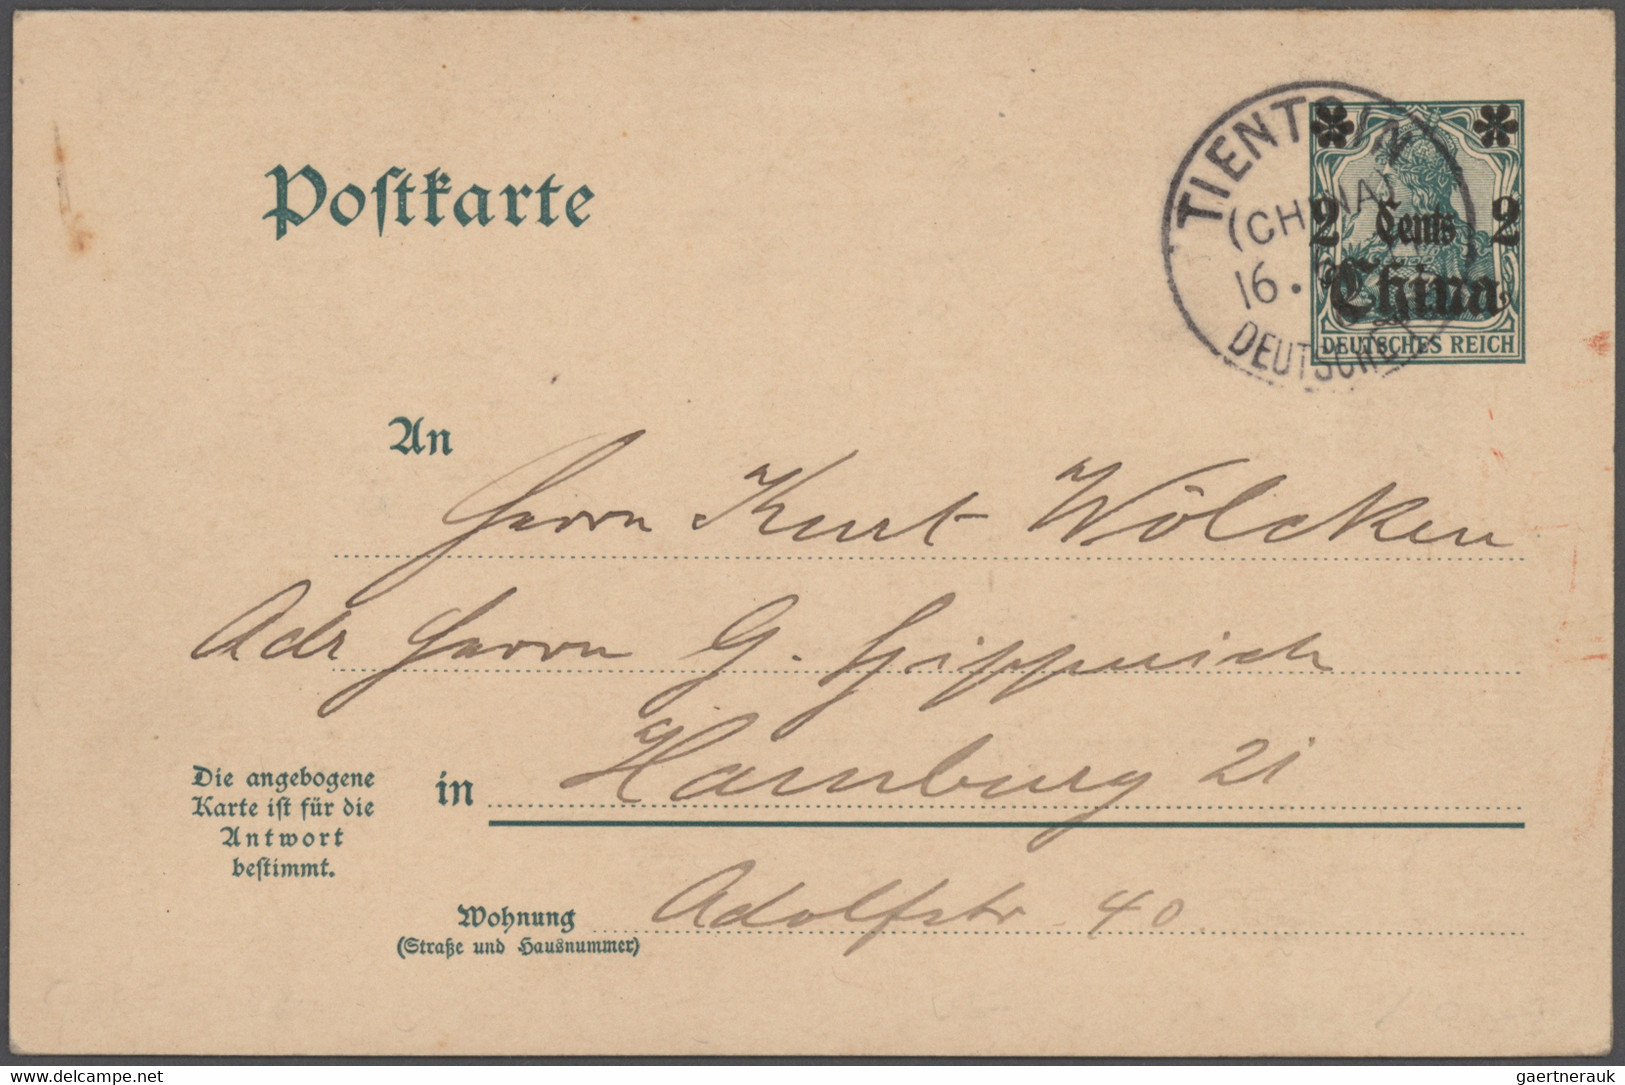 Postkarte
TIENTSIN
(CHINA)
16.
DEUTSCHE
2 Cents 2
China
DEUTSCHES REICH
An
Herrn Kurt Wölcken
Adr Herrn G. Hipperich
in Hamburg 21
Die angebogene
Karte ist für die
Antwort
bestimmt.
Wohnung Adolfstr 40
(Straße und Hausnummer)
www.delcampe.net
gaertnerauk